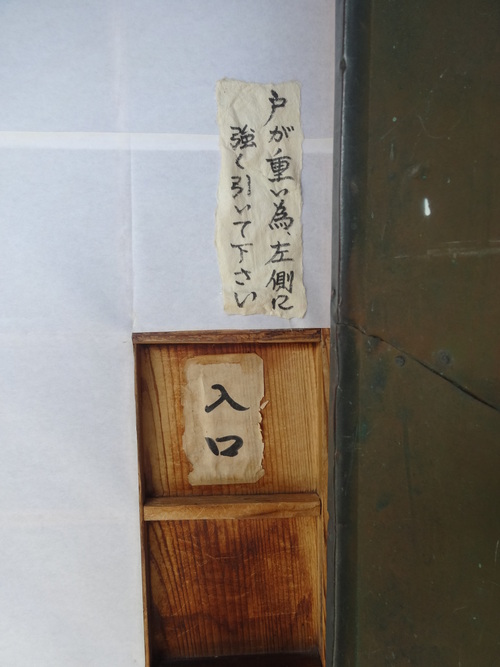 戸が重い為、左側に
強く引いて下さい
入口